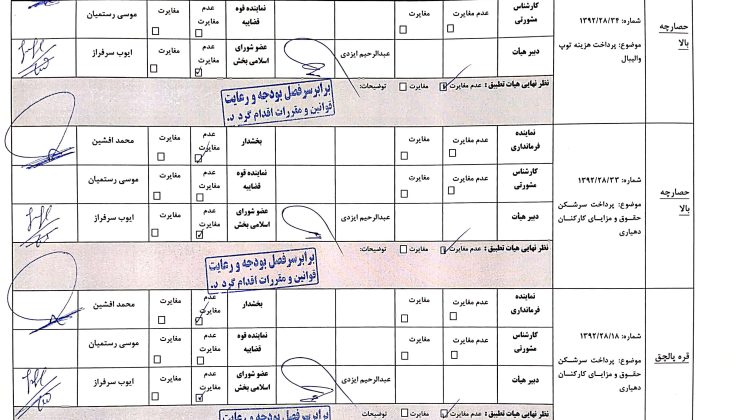 حصارچه بالا
شماره: ۱۳۹۲/۲۸/۳۴
موضوع: پرداخت هزینه توپ والیبال
کارشناس مشورتی
عدم مغایرت
مغایرت
نماینده قوه قضاییه
عدم مغایرت
مغایرت
موسی رستمیان
دبیر هیأت
عبدالرحیم ایزدی
عضو شورای اسلامی بخش
عدم مغایرت
مغایرت
ایوب سرفراز
نظر نهایی هیات تطبیق: عدم مغایرت مغایرت توضیحات:
برابر سرفصل بودجه و رعایت
قوانین و مقررات اقدام گردد.
حصارچه بالا
شماره: ۱۳۹۲/۲۸/۳۳
موضوع: پرداخت سرشکن
حقوق و مزایای کارکنان
دهیاری
نماینده فرمانداری
عدم مغایرت
مغایرت
بخشدار
عدم مغایرت
مغایرت
محمد افشین
کارشناس مشورتی
عدم مغایرت
مغایرت
نماینده قوه قضاییه
عدم مغایرت
مغایرت
موسی رستمیان
دبیر هیأت
عبدالرحیم ایزدی
عضو شورای اسلامی بخش
عدم مغایرت
مغایرت
ایوب سرفراز
نظر نهایی هیات تطبیق: عدم مغایرت مغایرت توضیحات:
برابر سرفصل بودجه و رعایت
قوانین و مقررات اقدام گردد.
قره پالچق
شماره: ۱۳۹۲/۲۸/۱۸
موضوع: پرداخت سرشکن
حقوق و مزایای کارکنان
دهیاری
نماینده فرمانداری
عدم مغایرت
مغایرت
بخشدار
عدم مغایرت
مغایرت
محمد افشین
کارشناس مشورتی
عدم مغایرت
مغایرت
نماینده قوه قضاییه
عدم مغایرت
مغایرت
موسی رستمیان
دبیر هیأت
عبدالرحیم ایزدی
عضو شورای اسلامی بخش
عدم مغایرت
مغایرت
ایوب سرفراز
نظر نهایی هیات تطبیق: عدم مغایرت مغایرت توضیحات:
برابر سرفصل بودجه و رعایت